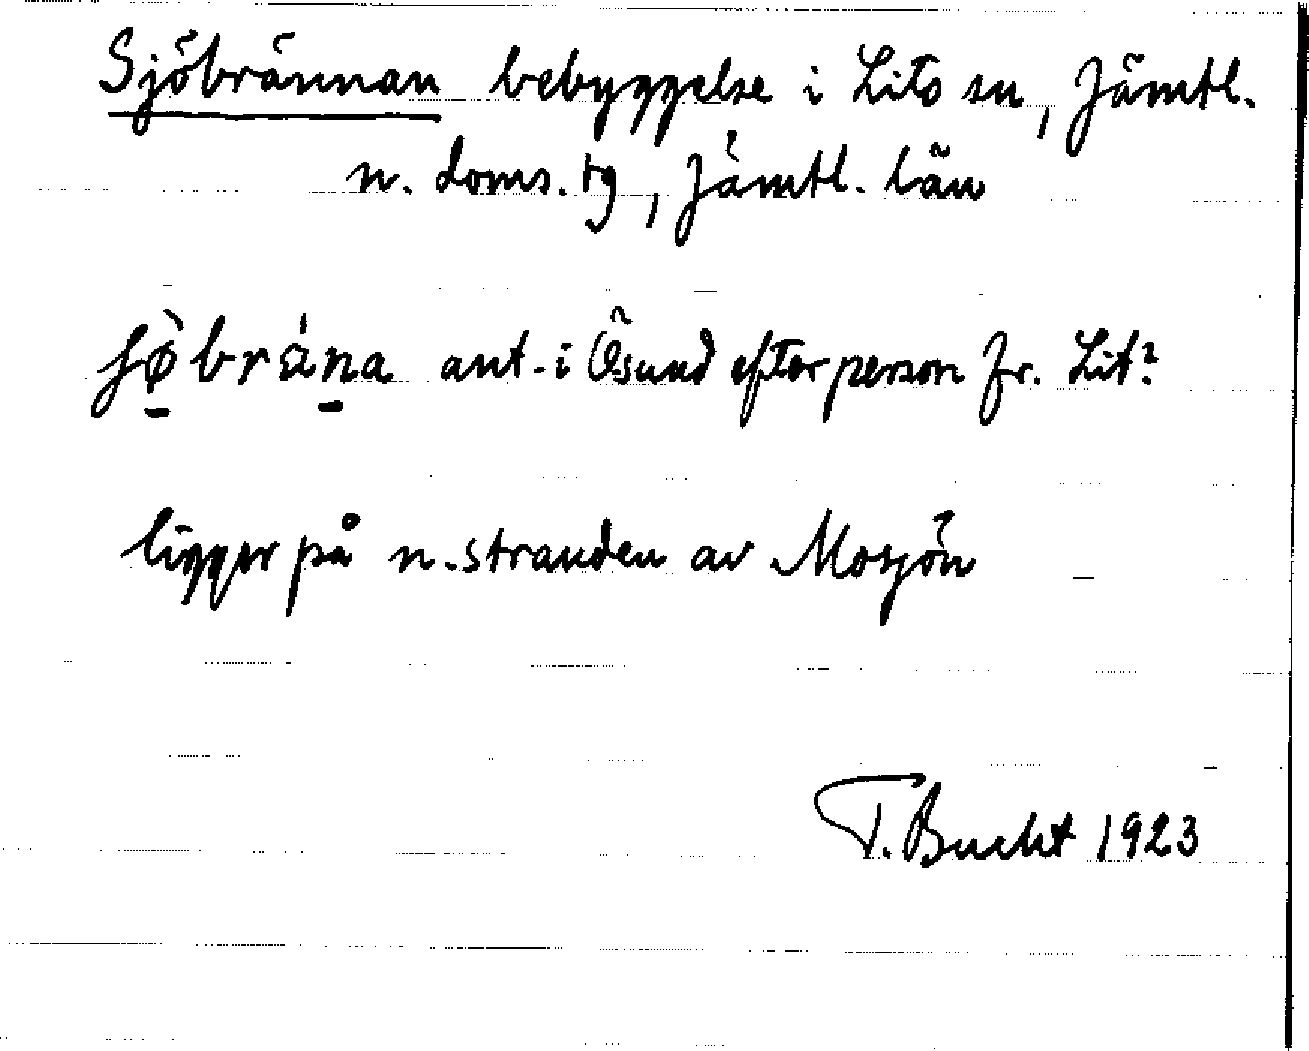 Sjöbrännan bebyggelse i Lits sn, Jämtl.
n. doms. tg, Jämtl. län
ant. i Ösund efter person fr. Lit?
ligger på n. stranden av Mosjön
T. Bucht 1923